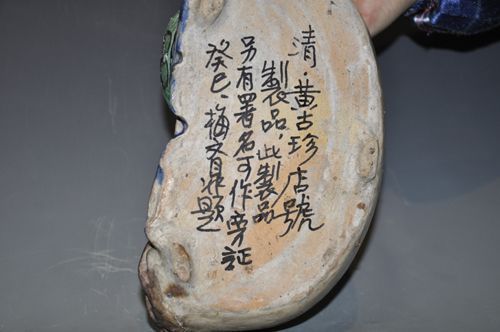 清·黃古珍店號
製品，此製品
另有署名可作旁証
癸巳、梅文鼎題